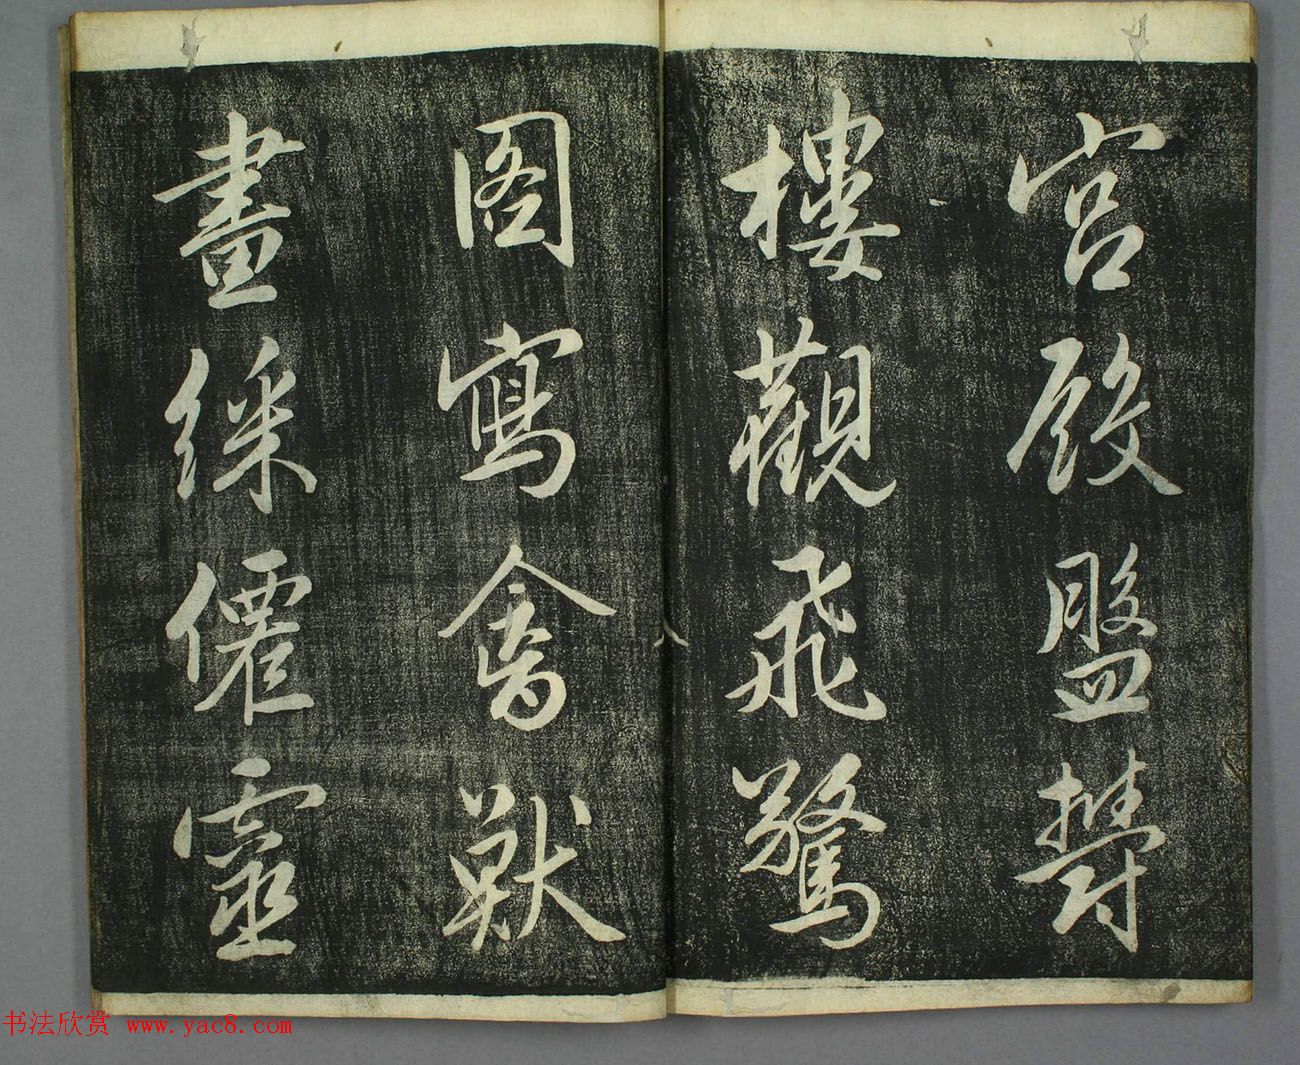 宮殿盤欝
樓觀飛驚
圖寫禽獸
畫綵僊靈
书法欣赏 www.yac8.com